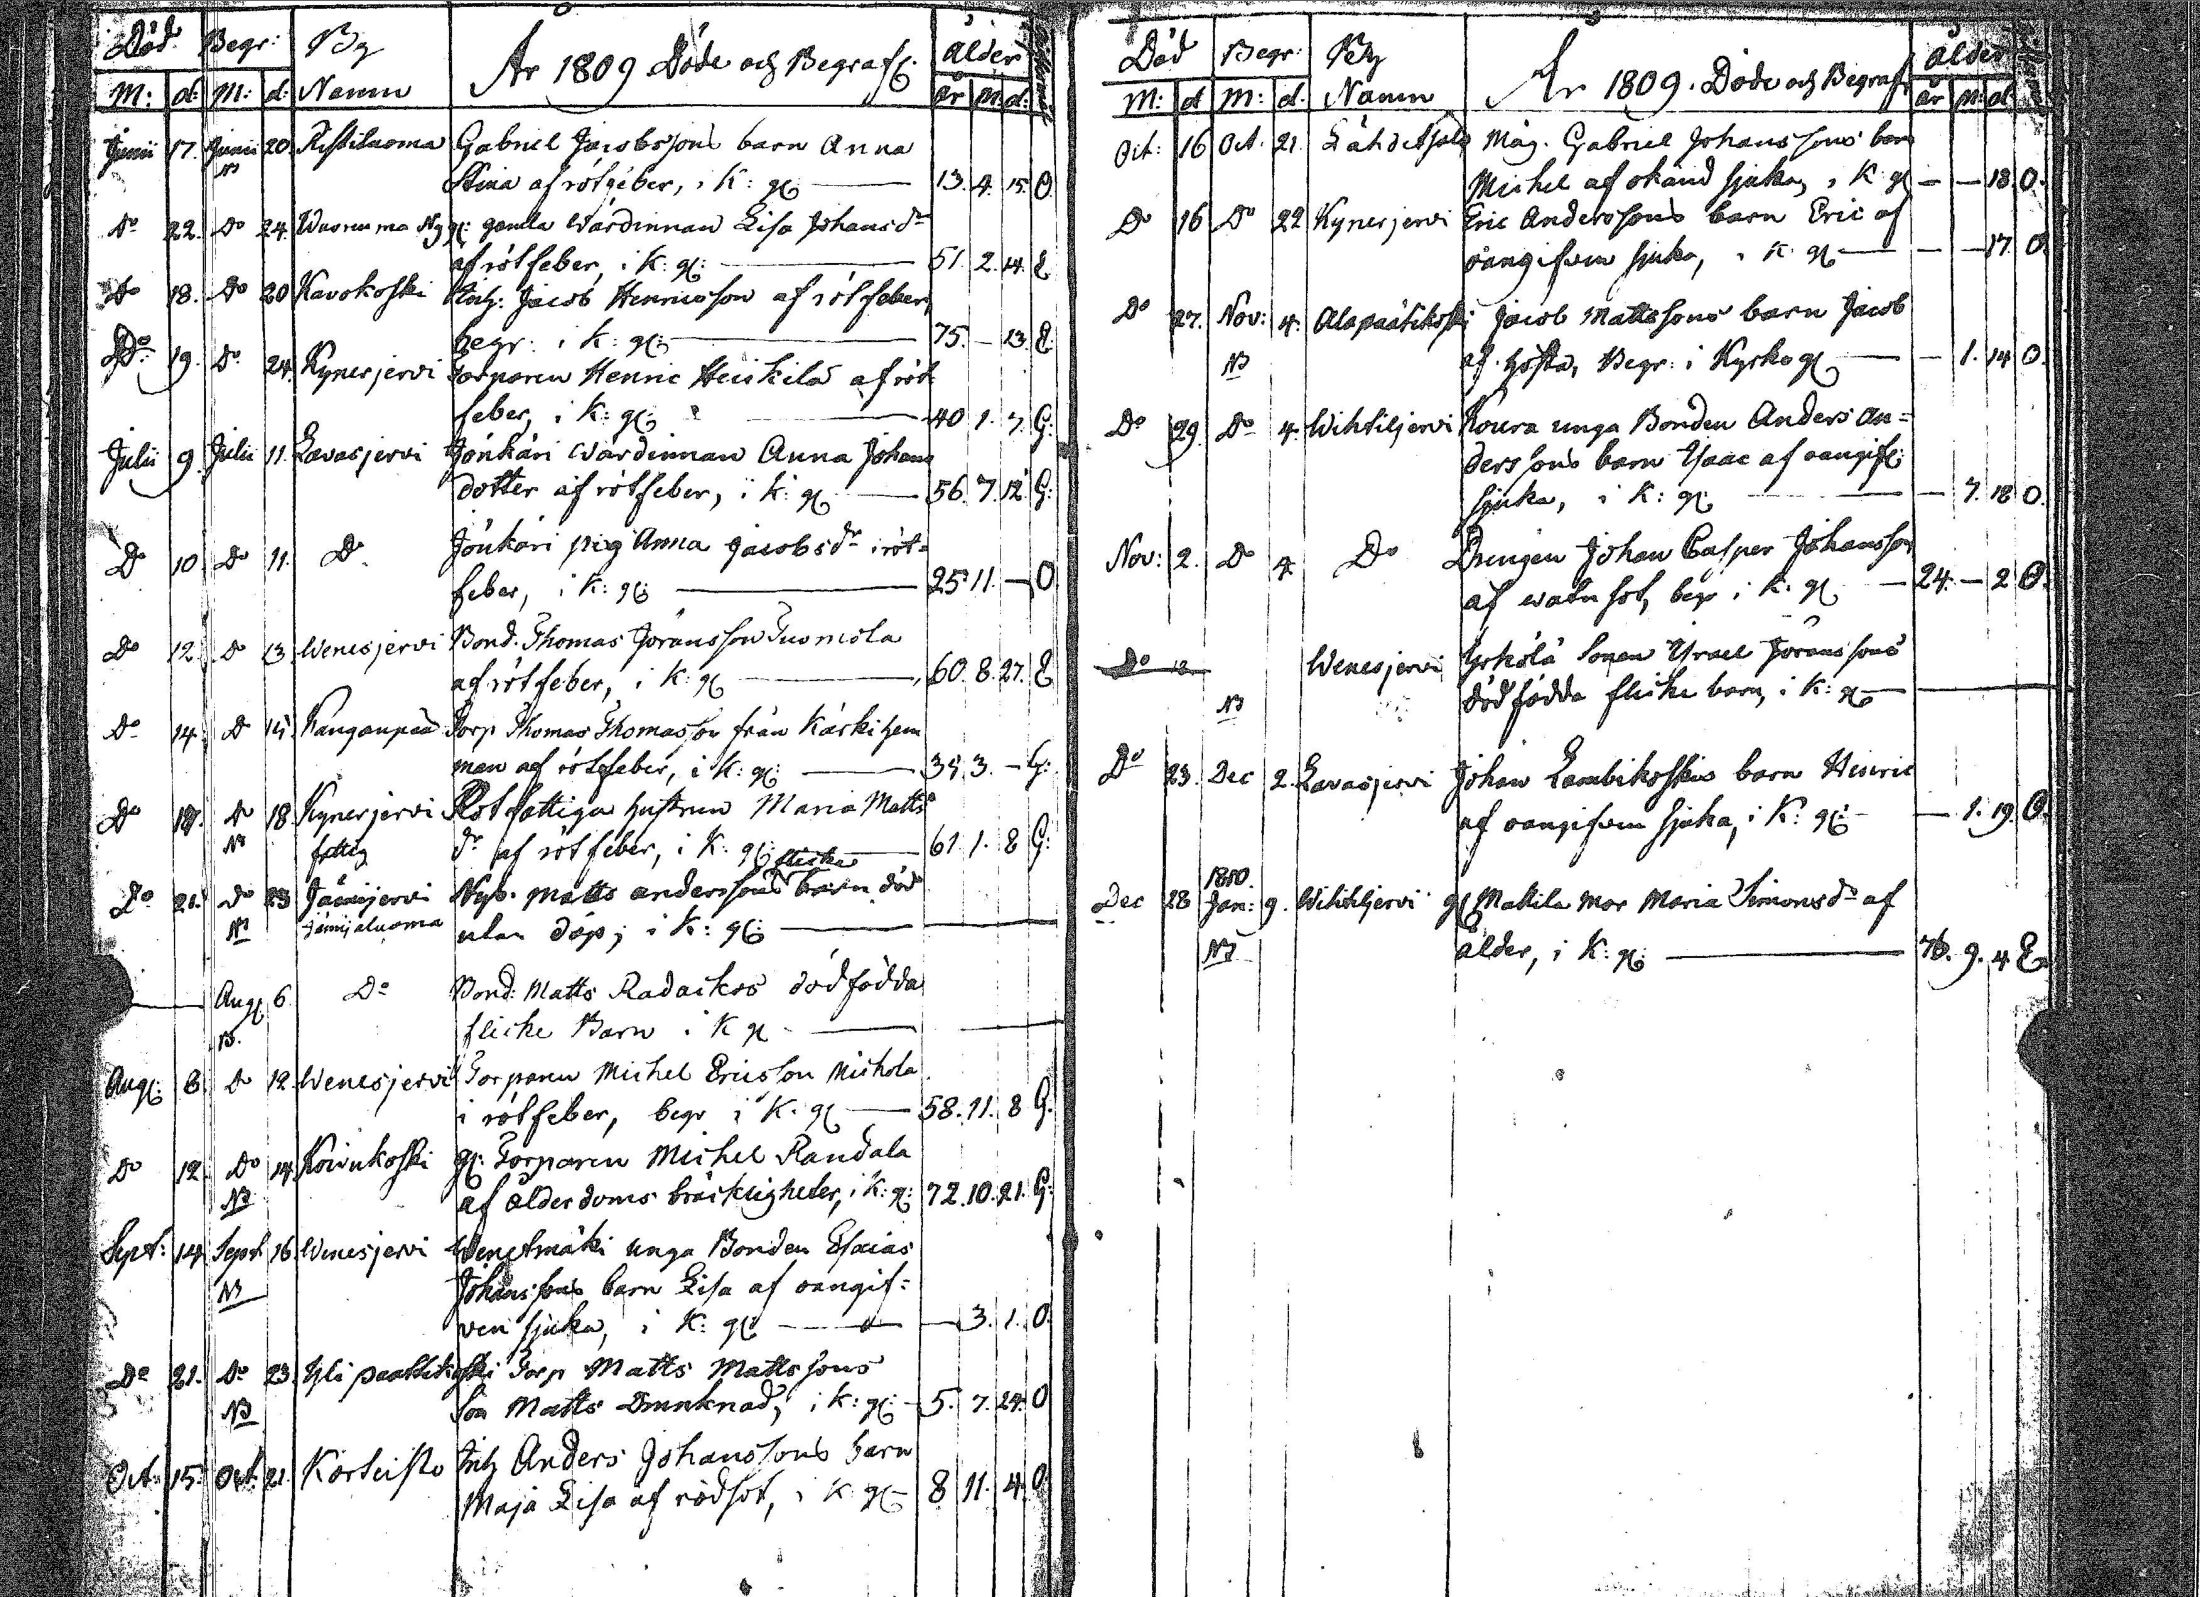 Död Begr: By År 1809 Döde och Begrafg: ålder
M: d: M: d: Namn år m: d:
Junii 17. Junii 20. Ristiluoma Gabriel Jacobssons barn Anna
Stina af rötfeber, i K: g: — 13. 4. 15. O
Do 22. Do 24. gamla Wärdinnan Lisa Johansdr
af rötfeber, i K: g: — 51. 2. 14. E
Do 18. Do 20 Kavokoski Inh: Jacob Henricsson af rötfeber,
begr: i K: g: — 75. — 13. E
Do 19. Do 24. Kynesjervi Torparen Henric Heickilä af röt-
feber, i K: g: — 40 1. 7. G:
Julii 9. Julii 11. Lavasjervi Jönkäri Wärdinnan Anna Johans
dotter af rötfeber, i K: g: — 56. 7. 12. G:
Do 10 Do 11. Do Jönkäri pig Anna Jacobsdr i röt-
feber, i K: g: — 25 11. — O
Do 12. Do 13. Wenesjervi Bond. Thomas Jöransson Tuomola
af rötfeber, i K: g: — 60. 8. 27. E
Do 14. Do 15. Kanganpää Torp Thomas Thomasson från Käski hem
man af rötfeber, i K: g: — 35 3. — G:
Do 17. Do 18. Kynesjervi Rotfattiga hustrun Maria Matts
NB fattig dr af rötfeber, i K: g: — 61. 1. 8 G:
flicke
Do 21. Do 23 Jämijervi Nyb. Matts Anderssons barn död
NB Jämijaluoma utan dop; i K: g: —
— Aug: 6. Do Bond: Matts Radaikos dödfödda
NB. flicke Barn i K g —
Aug: 8. Do 12. Wenesjervi Torparen Michel Ericsson Mickola
i rötfeber, begr i K. g: — 58. 11. 8 G.
Do 12. Do 14. Koivukoski g: Torparen Michel Randala
NB af ålderdoms bräckligheter, i K: g: 72. 10. 21. G:
Sept: 14. Sept. 16. Wenesjervi Wenetmäki unga Bonden Esaias
NB Johanssons barn Lisa af oangif-
ven sjuka, i K: g: — — 3. 1. O
Do 21. Do 23. Yli paattikoski Torp Matts Mattssons
NB Son Matts Drunknad, i K: g: — 5. 7. 24. O
Oct: 15. Oct. 21. Korteisto Inh Anders Johanssons barn
Maja Lisa af rödsot, i K g: — 8 11. 4. O
Död Begr: By År 1809. Döde och Begraf: ålder
M: d M: d. Namn år m: d
Oct: 16 Oct. 21. Måg. Gabriel Johanssons barn
Michel af okänd sjuka, i K g — — 18. O.
Do 16 Do 22 Kynesjervi Eric Anderssons barn Eric af
oangifven sjuka, i K g — — — 17. O
Do 27. Nov: 4. Alapaatikoski Jacob Mattssons barn Jacob
NB af hosta, Begr: i Kyrko g: — — 1. 14 O.
Do 29. Do 4. Wihtiljervi Koura unga Bonden Anders An-
derssons barn Isaac af oangif:
sjuka, i K: g: — — 7. 18 O.
Nov: 2. Do 4. Do Drengen Johan Casper Johansson
af watu sot, begr i K. g — 24. — 2 O.
Wenesjervi Yrkölä Sonen Israel Jöranssons
NB dödfödda flicke barn, i K: g: —
Do 23. Dec 2. Lavasjervi Johan Lambikoskis barn Henric
af oangifven sjuka, i K: g: — — 1. 19. O.
1810.
Dec 28 Jan: 9. Wihtiljervi g: Mattila mor Maria Simonsdr af
NB ålder, i K: g: — 76. 9. 4 E.